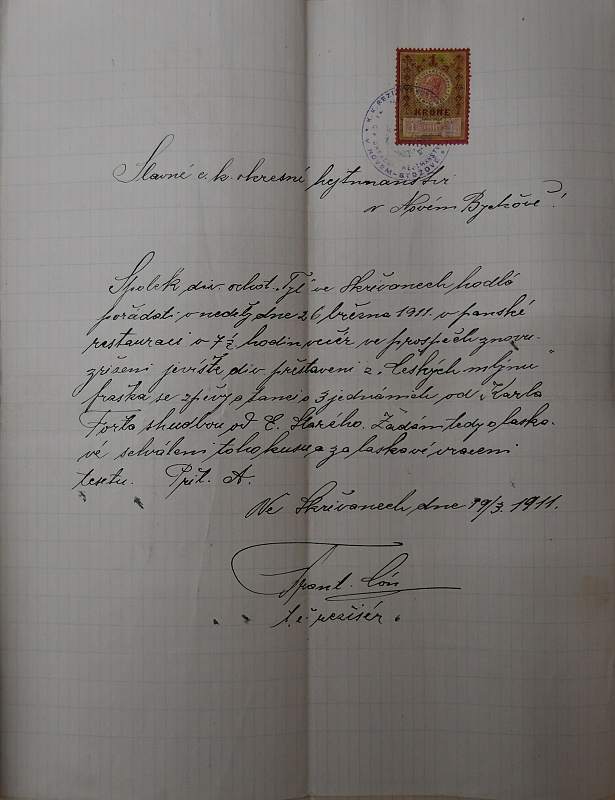 1
KRONE
V NOVÉM-BYDŽOVĚ
Slavné c. k. okresní hejtmanství
v Novém Bydžově!
Spolek div. ochot. „Tyl" ve Skřivanech hodlá
pořádati v neděli, dne 26 března 1911. v panské
restauraci v 7½ hodin večer ve prospěch znovu-
zřízení jeviště div. přestavení z „Českých mlýnů"
fraška se zpěvy a tanci o 3 jednáních od Karla
Fořta s hudbou od E. Starého. Žádám tedy o laska-
vé schválení toho kusu a za laskavé vrácení
textu. Příl. A.
Ve Skřivanech, dne 19/3. 1911.
Frant.
t. č. režisér.